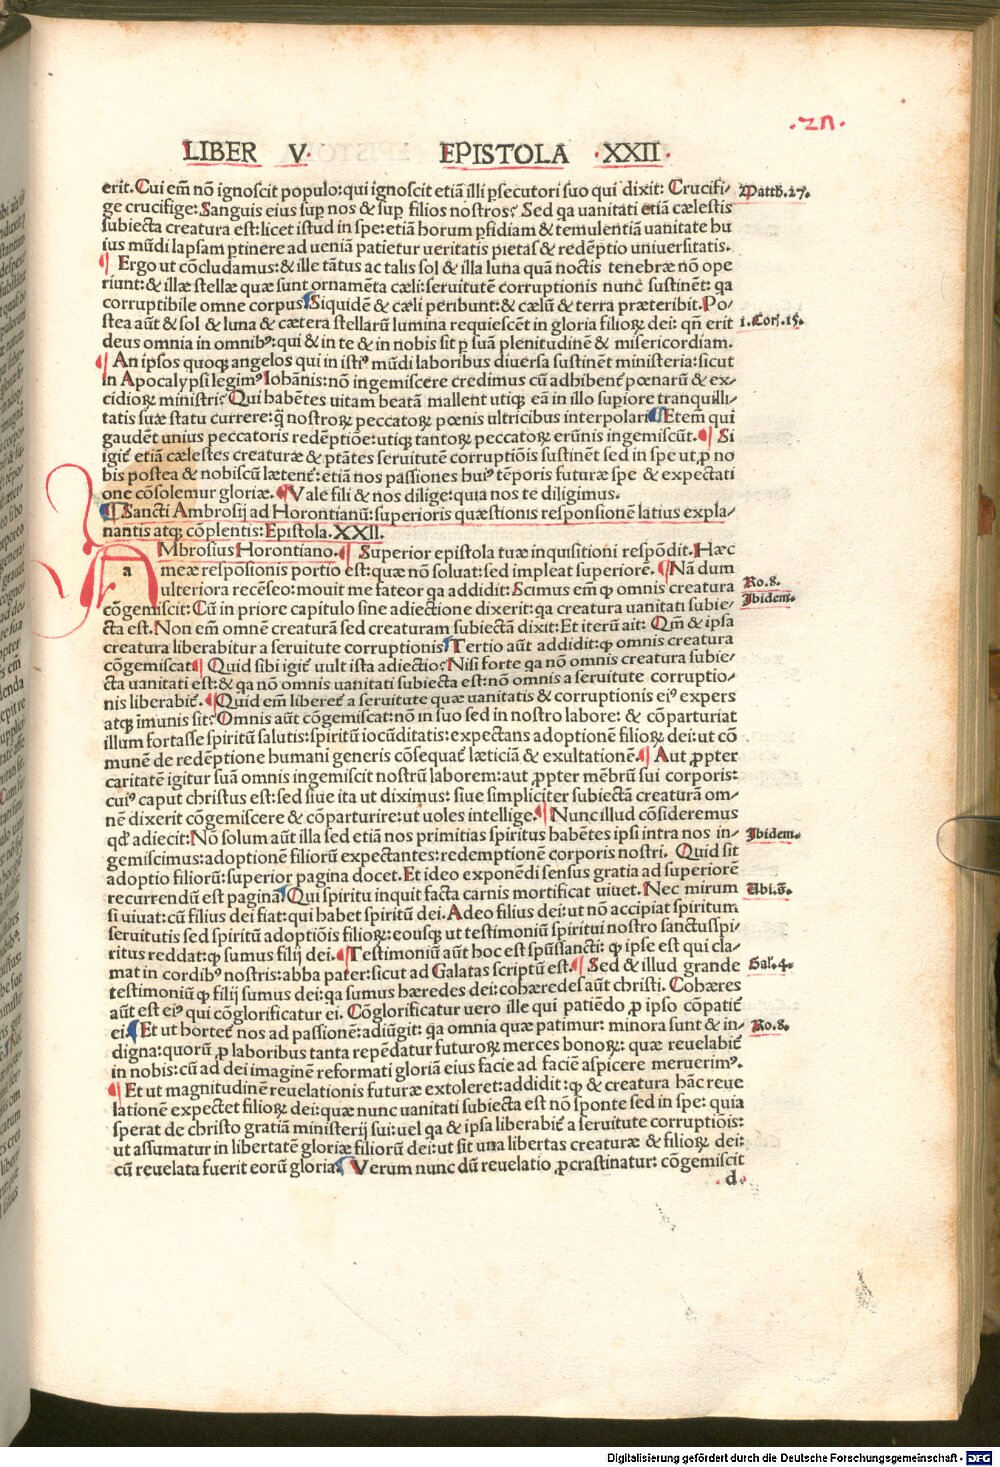 .2n.
LIBER V. EPISTOLA .XXII.
erit. Cui em̄ nō ignoscit populo: qui ignoscit etiā illi ꝑsecutori suo qui dixit: Crucifi- Matth.27.
ge crucifige: Sanguis eius sup̱ nos & sup̱ filios nostros? Sed qa uanitati etiā cælestis
subiecta creatura est: licet istud in spe: etiā horum ꝑfidiam & temulentiā uanitate hu
ius mūdi lapsam ꝑtinere ad ueniā patietur ueritatis pietas & redēptio uniuersitatis.
¶ Ergo ut cōcludamus: & ille tātus ac talis sol & illa luna quā noctis tenebræ nō ope
riunt: & illæ stellæ quæ sunt ornamēta cæli: seruitutē corruptionis nunc sustinēt: qa
corruptibile omne corpus. Siquidē & cæli peribunt: & cælū & terra præteribit. Po-
stea aūt & sol & luna & cætera stellarū lumina requiescēt in gloria filioꝝ dei: qn̄ erit 1.Cor.15.
deus omnia in omnibꝰ: qui & in te & in nobis sit ꝑ suā plenitudinē & misericordiam.
¶ An ipsos quoqꝫ angelos qui in istiꝰ mūdi laboribus diuersa sustinēt ministeria: sicut
in Apocalypsi legimꝰ Iohānis: nō ingemiscere credimus cū adhibent̄ pœnarū & ex-
cidioꝝ ministri? Qui habētes uitam beatā mallent utiqꝫ eā in illo supiore tranquilli-
tatis suæ statu currere: q̄ nostroꝝ peccatoꝝ pœnis ultricibus interpolari. Etem̄ qui
gaudēt unius peccatoris redēptiōe: utiqꝫ tantoꝝ peccatoꝝ erūnis ingemiscūt. ¶ Si
igit̄ etiā cælestes creaturæ & ptātes seruitutē corruptiōis sustinēt sed in spe ut ꝓ no
bis postea & nobiscū lætent̄: etiā nos passiones huiꝰ tēporis futuræ spe & expectati
one cōsolemur gloriæ. ¶ Vale fili & nos dilige: quia nos te diligimus.
¶ Sancti Ambrosij ad Horontianū: superioris quæstionis responsionē latius expla-
nantis atqꝫ cōplentis: Epistola. XXII.
a Mbrosius Horontiano. ¶ Superior epistola tuæ inquisitioni respōdit. Hæc
meæ respōsionis portio est: quæ nō soluat: sed impleat superiorē. ¶ Nā dum
ulteriora recēseo: mouit me fateor qa addidit: Scimus em̄ ꝙ omnis creatura Ro.8.
cōgemiscit: Cū in priore capitulo sine adiectione dixerit: qa creatura uanitati subie- Ibidem.
cta est. Non em̄ omnē creaturā sed creaturam subiectā dixit: Et iterū ait: Qm̄ & ipsa
creatura liberabitur a seruitute corruptionis. Tertio aūt addidit: ꝙ omnis creatura
cōgemiscat. ¶ Quid sibi igit̄ uult ista adiectio? Nisi forte qa nō omnis creatura subie-
cta uanitati est: & qa nō omnis uanitati subiecta est: nō omnis a seruitute corruptio-
nis liberabit̄. ¶ Quid em̄ liberet̄ a seruitute quæ uanitatis & corruptionis eiꝰ expers
atqꝫ īmunis sit? Omnis aūt cōgemiscat: nō in suo sed in nostro labore: & cōparturiat
illum fortasse spiritū salutis: spiritū iocūditatis: expectans adoptionē filioꝝ dei: ut cō
munē de redēptione humani generis cōsequat̄ læticiā & exultationē. ¶ Aut ꝓpter
caritatē igitur suā omnis ingemiscit nostrū laborem: aut ꝓpter mēbrū sui corporis:
cuiꝰ caput christus est: sed siue ita ut diximus: siue simpliciter subiectā creaturā om-
nē dixerit cōgemiscere & cōparturire: ut uoles intellige. ¶ Nunc illud cōsideremus
qd̄ adiecit: Nō solum aūt illa sed etiā nos primitias spiritus habētes ipsi intra nos in- Ibidem.
gemiscimus: adoptionē filiorū expectantes: redemptionē corporis nostri. Quid sit
adoptio filiorū: superior pagina docet. Et ideo exponēdi sensus gratia ad superiorē
recurrendū est paginā. Qui spiritu inquit facta carnis mortificat uiuet. Nec mirum Ubi.s̄.
si uiuat: cū filius dei fiat: qui habet spiritū dei. Adeo filius dei: ut nō accipiat spiritum
seruitutis sed spiritū adoptiōis filioꝝ: eousqꝫ ut testimoniū spiritui nostro sanctus spi-
ritus reddat: ꝙ sumus filij dei. ¶ Testimoniū aūt hoc est spūssancti: ꝙ ipse est qui cla-
mat in cordibꝰ nostris: abba pater: sicut ad Galatas scriptū est. ¶ Sed & illud grande Gal.4.
testimoniū ꝙ filij sumus dei: qa sumus hæredes dei: cohæredes aūt christi. Cohæres
aūt est eiꝰ qui cōglorificatur ei. Cōglorificatur uero ille qui patiēdo ꝓ ipso cōpatit̄
ei. Et ut hortet̄ nos ad passionē: adiūgit: qa omnia quæ patimur: minora sunt & in- Ro.8.
digna: quorū ꝓ laboribus tanta repēdatur futuroꝝ merces bonoꝝ: quæ reuelabit̄
in nobis: cū ad dei imaginē reformati gloriā eius facie ad faciē aspicere meruerimꝰ.
¶ Et ut magnitudinē reuelationis futuræ extoleret: addidit: ꝙ & creatura hāc reue
lationē expectet filioꝝ dei: quæ nunc uanitati subiecta est nō sponte sed in spe: quia
sperat de christo gratiā ministerij sui: uel qa & ipsa liberabit̄ a seruitute corruptiōis:
ut assumatur in libertatē gloriæ filiorū dei: ut sit una libertas creaturæ & filioꝝ dei:
cū reuelata fuerit eorū gloria. Verum nunc dū reuelatio ꝓcrastinatur: cōgemiscit
d
Digitalisierung gefördert durch die Deutsche Forschungsgemeinschaft - DFG